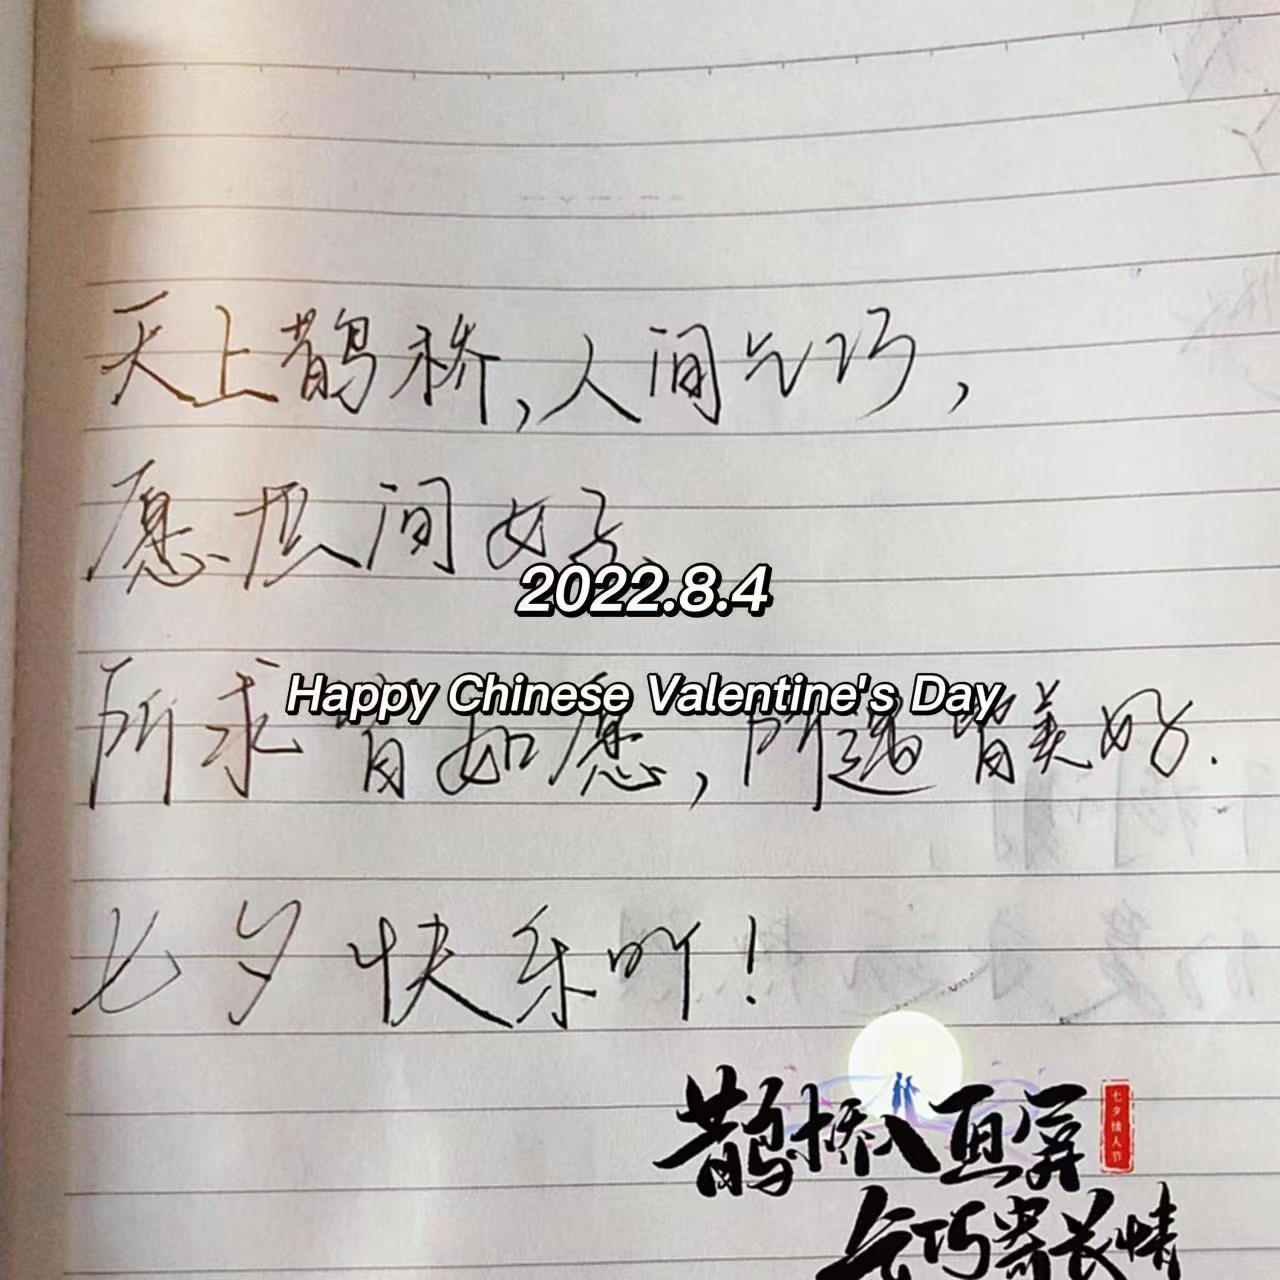 天上鹊桥,人间乞巧,
愿世间好
2022.8.4
Happy Chinese Valentine's Day
所求皆如愿,所遇皆美好.
七夕快乐吖!
鹊桥入画屏
七夕情人节
乞巧寄长情